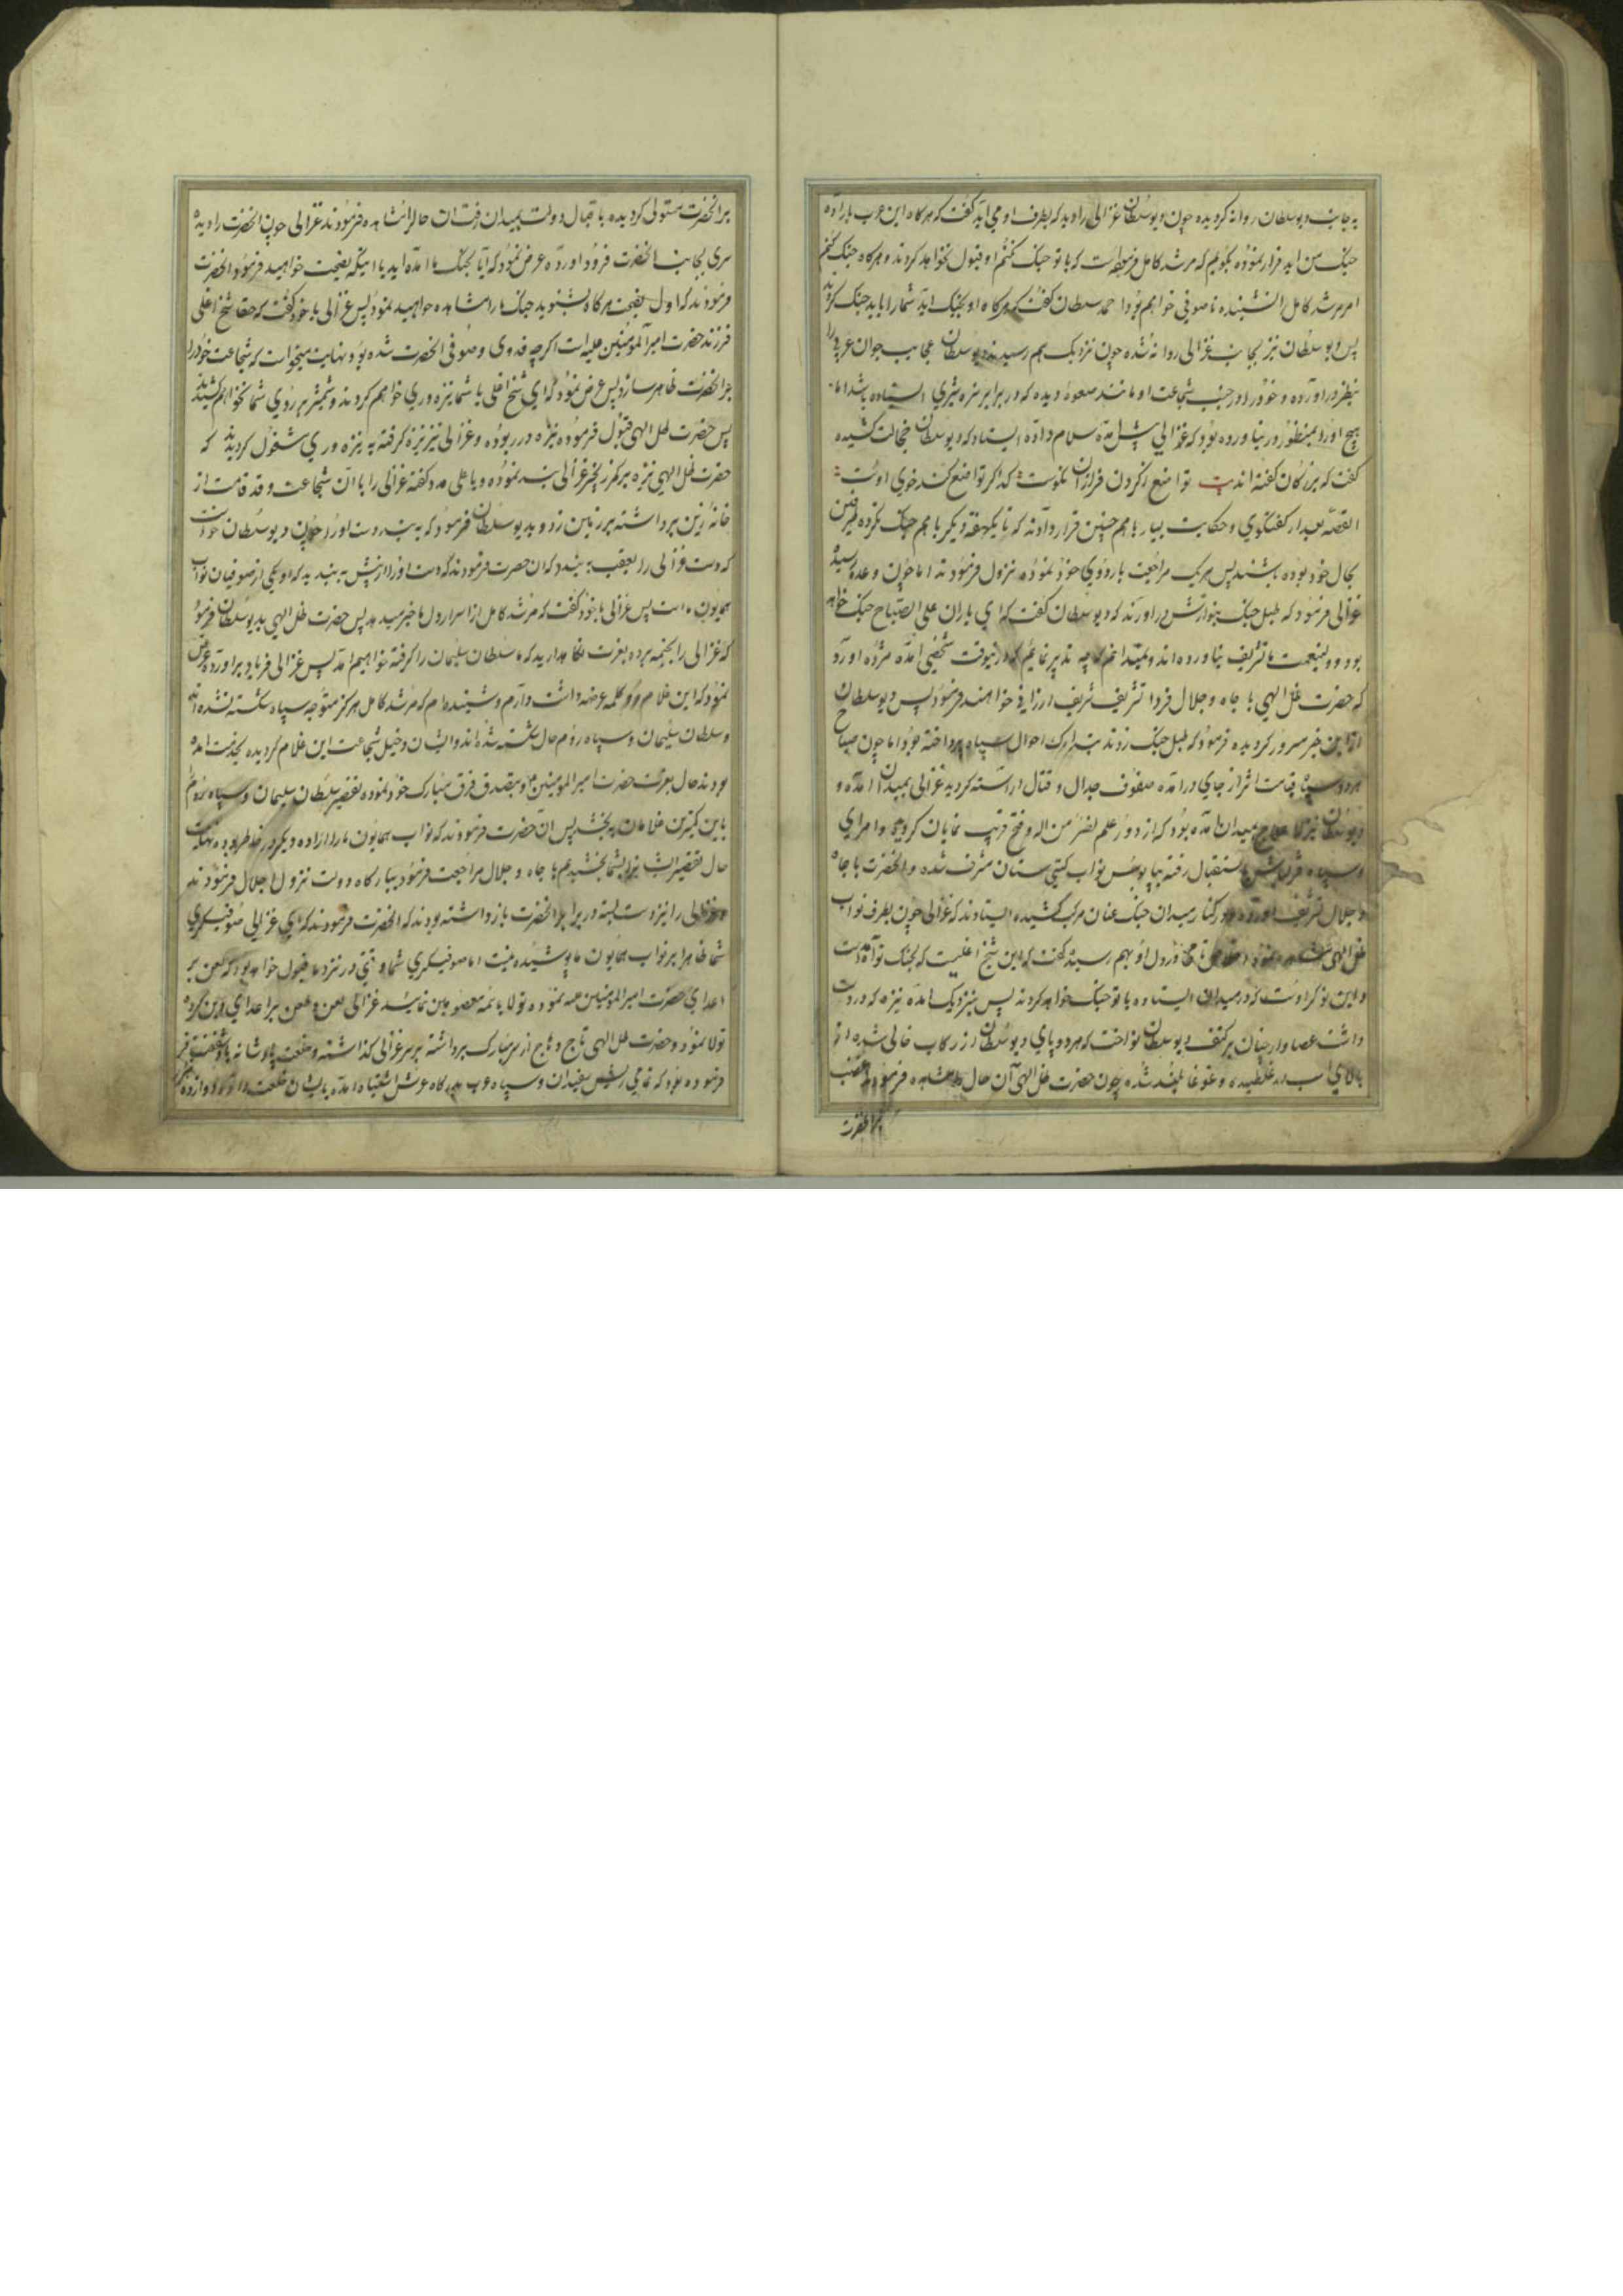 به جانب دیوسلطان روانه کردیده چون دیوسلطان غزالی را دید که بطرف او می آید کفت که هرکاه این عرب باراده
جنک من اید فرار نموده بکویم که مرشد کامل فرموده است که با تو جنک کنم او قبول نخواهد کرد و هرکاه جنک کنم
امر مرشد کامل را نشنیده ناصوفی خواهم بود احمد سلطان کفت که هرکاه او بجنک اید شما را باید جنک کرد
پس دیوسلطان نیز بجانب غزالی روانه شده چون نزدیک بهم رسیدند دیوسلطان عجایب جوان عربی را
بنظر دراورده و خود را در جنب شجاعت او مانند صعوهٔ دیده که در برابر نره شیری ایستاده باشد اما
هیچ او را بمنظور درنیاورده بود که غزالی پیش امده سلام داده ایستاد که دیوسلطان خجالت کشیده
کفت که بزرکان کفته اند بیت تواضع ز کردن فرازان نکوست کدا کر تواضع کند خوی اوست
القصه بعد از کفتکوی و حکایت بسیار با هم چنین قرار دادند که تا یکهفته دیکر با هم جنک نکرده طرفین
بحال خود بوده باشند پس هریک مراجعت باردوی خود نموده نزول فرمودند اما چون وعده رسید
غزالی فرمود که طبل جنک بنوازش دراورند که دیوسلطان کفت که ای یاران علی الصباح جنک خواهد
بود و ولینعمت ما تشریف نیاورده اند و نمیدانم که چه تدبیر نمایم که در اینوقت شخصی امده مژده اورد
که حضرت ظل الهی با جاه و جلال فردا تشریف شریف ارزانی خواهند فرمود پس دیوسلطان
از این خبر مسرور کردیده فرمود که طبل جنک زدند بتدارک احوال سپاه پرداخته بود اما چون صباح
هر دو سپاه قیامت اثر از جای درامده صفوف جدال و قتال اراسته کردید غزالی بمیدان امده و
دیوسلطان نیز لا علاج بمیدان امده بود که از دور علم نصر من اله و فتح قریب نمایان کردید و امرای
و سپاه قزلباش باستقبال رفته بپابوس نواب کیتی ستان مشرف شده و انحضرت با جاه
و جلال تشریف اورده در کنار میدان جنک عنان مرکب کشیده ایستادند که غزالی چون بطرف نواب
ظل الهی مشاهده نمود در دل او بهم رسید کفت که این شیخ اغلیست که بجنک تو آمده است
و این نوکر اوست که در میدان ایستاده با تو جنک خواهد کرد پس بنزدیک امده نیزه که در دست
داشت عصا وار چنان بر کتف دیوسلطان نواخت که هر دو پای دیوسلطان از رکاب خالی شده از
بالای اسب در غلطیده و غوغا بلند شده چون حضرت ظل الهی آن حال را مشاهده فرمود غضب
بر انحضرت
بر انحضرت مستولی کردیده باقبال دولت بمیدان رفت ان حال را مشاهده فرمودند غزالی چون انحضرت را دیده
سری بجانب انحضرت فرود اورده عرض نمود که آیا بجنک ما امده اید یا اینکه نصیحت خواهید فرمود انحضرت
فرمودند که اول نصیحت هرکاه نشنوید جنک ما را مشاهده خواهید نمود پس غزالی با خود کفت که حقا شیخ اغلی
فرزند حضرت امیرالمومنین علیه است اکرچه فدوی و صوفی انحضرت شده بود نهایت میخواست که شجاعت خود را
بر انحضرت ظاهر سازد پس عرض نمود که ای شیخ اغلی با شما نیزه وری خواهم کرد و شمشیر بر روی شما نخواهم کشید
پس حضرت ظل الهی قبول فرموده نیزه در ربوده و غزالی نیز نیزه کرفته به نیزه وری مشغول کردیدند که
حضرت ظل الهی نیزه بر کمر زنجیر غزالی بند نموده و یا علی مدد کفته غزالی را با آن شجاعت و قد قامت از
خانه زین برداشته بر زمین زد و به دیوسلطان فرمود که به بند دست او را چون دیوسلطان خواست
که دست غزالی را بعقب بندد که ان حضرت فرمودند که دست او را از پیش به بندید که او یکی از صوفیان نواب
همایون ماست پس غزالی با خود کفت که مرشد کامل از اسرار دل ما خبر میدهد پس حضرت ظل الهی به دیوسلطان فرمود
که غزالی را بخیمه برده بعزت نکاهدارید که ما سلطان سلیمان را کرفته خواهیم آمد پس غزالی فریاد براورده عرض
نمود که این غلام دو کلمه عرضه داشت دارم و شنیده ام که مرشد کامل هرکز متوجه سپاه شکسته نشده اند
و سلطان سلیمان و سپاه روم حال شکسته شده اند و ایشان دخیل شجاعت این غلام کردیده بخدمت امده
بودند حال بعزت حضرت امیرالمومنین و بتصدق فرق مبارک خود نموده تقصیر سلطان سلیمان و سپاه روم
باین کمترین غلامان به بخشید پس آن حضرت فرمودند که نواب همایون ما را اراده دیکر در خاطر بوده
حال تقصیر ایشانرا بشما بخشیدیم با جاه و جلال مراجعت فرمود ببارکاه دولت نزول اجلال فرمودند
و غزالی را نیز دست بسته در برابر انحضرت باز داشته بودند که انحضرت فرمودند که ای غزالی صوفیکری
شما ظاهرا بر نواب همایون ما پوشیده نیست اما صوفیکری شما وقتی در نزد ما قبول خواهد بود که لعن بر
اعدای حضرت امیرالمومنین نموده تولا بائمه معصومین نمائید غزالی لعن و طعن بر اعدای دین کرده
تولا نمود و حضرت ظل الهی تاج وهاج از سر مبارک برداشته بر سر غزالی کذاشته و خلعت پادشاهانه
فرموده بود که تمامی ریش سفیدان و سپاه عرب بدرکاه عرش اشتباه امده بایشان خلعت